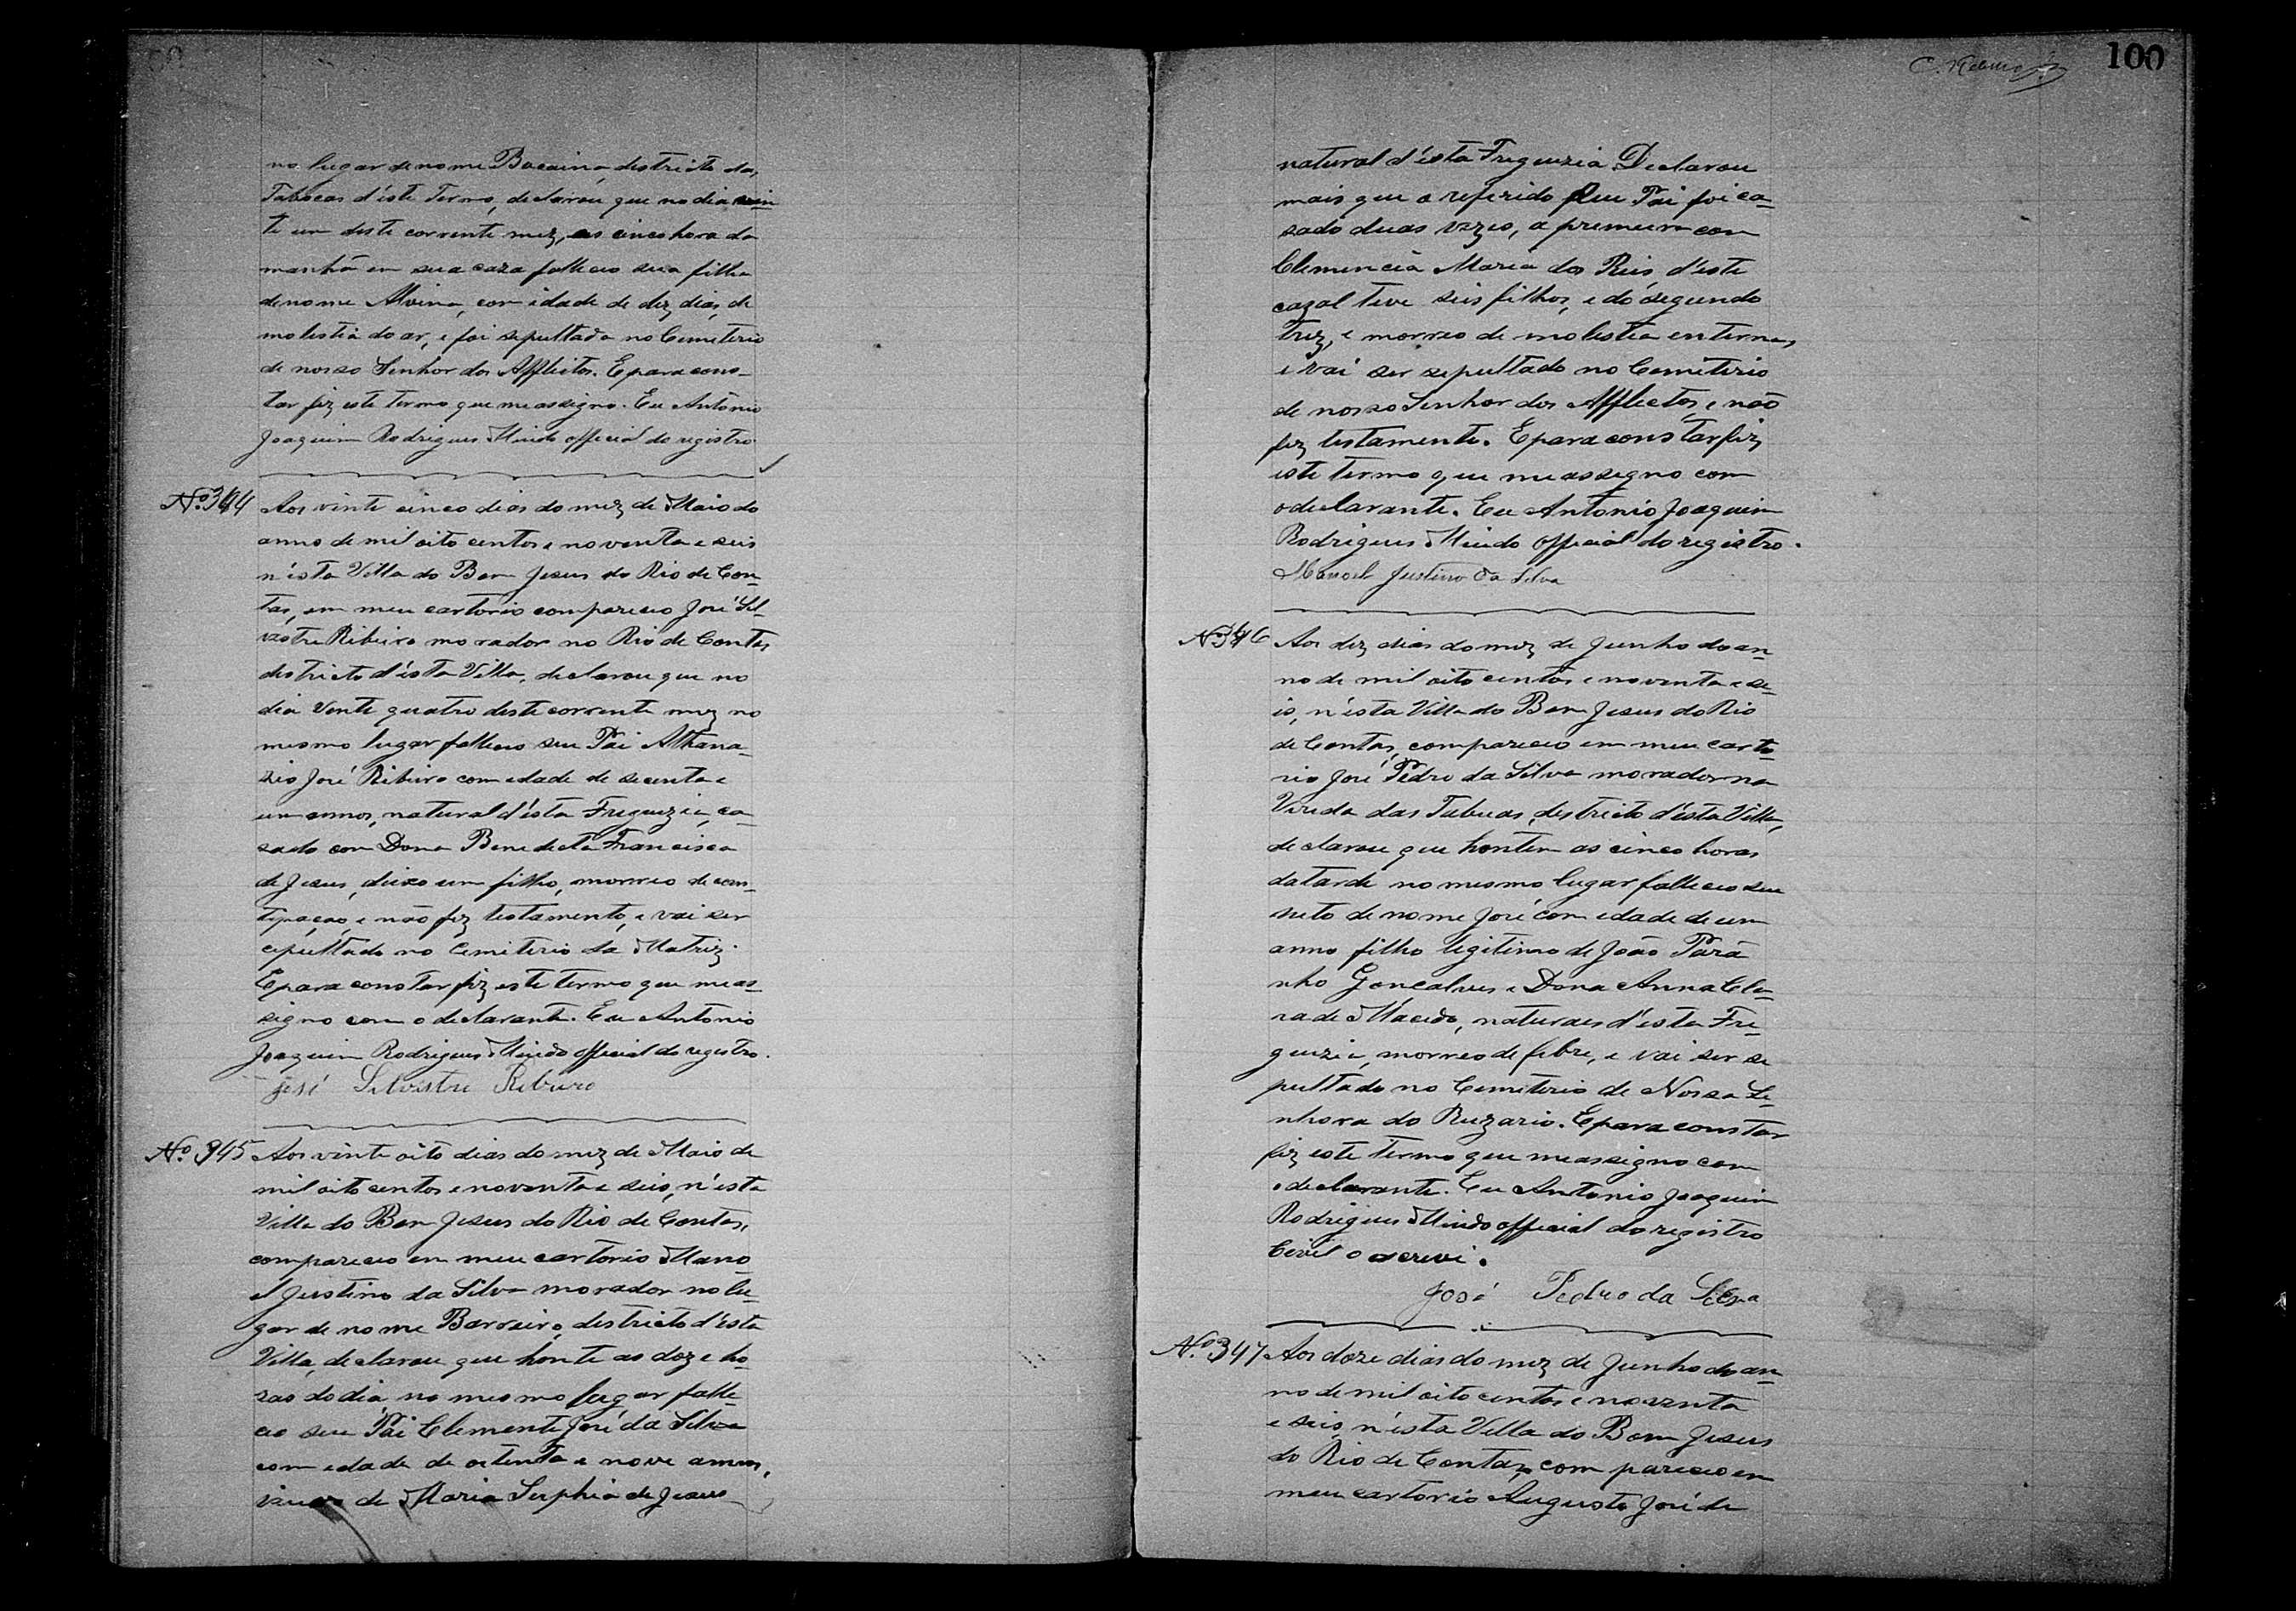 no lugar de nome Bocaina, destricto das
Tabocas d'éste Termo, declarou que no dia vin
te um deste corrente mez, as cinco hora da
manhã em sua caza falleceo sua filha
de nome Alvina, com idade de dez dias, de
molestia do ar, e foi sepultada no Cemeterio
de nosso Senhor dos Afflictos. E para cons-
tar fiz este termo que me assigno. Eu Antonio
Joaquim Rodrigues Mindo official do registro
Nº 344 Aos vinte cinco dias do mez de Maio do
anno de mil oito centos e noventa e seis
n'ésta Villa do Bom Jesus do Rio de Con-
tas, em meu cartorio compareceo José Sil-
vestre Ribeiro morador no Rio de Contas
destricto d'ésta Villa, declarou que no
dia Vente quatro deste corrente mez no
mesmo lugar falleceo seu Pai Athana-
sio José Ribeiro com edade de secenta e
um annos, natural d'ésta Freguezia, ca-
sado com Dona Benedecta Francisca
de Jesus, deixo um filho, morreo de cons-
tipação, e não fez testamento, e vai ser
cepultado no Cemeterio da Matriz.
E para constar fiz este termo que me as-
signo com o declarante. Eu Antonio
Joaquim Rodrigues Mindo official do registro.
José Silvestre Ribeiro
Nº 345 Aos vinte oito dias do mez de Maio de
mil oito centos e noventa e seis, n'ésta
Villa do Bom Jesus do Rio de Contas,
compareceo em meu cartorio Mano
el Justino da Silva morador no lu-
gar de nome Barreiro, destricto d'ésta
Villa, declarou que honte as doze ho-
ras do dia, no mesmo lugar falle-
ceo seu Pai Clemente José da Silva
com edade de oitenta e nove annos,
viuvo de Maria Serphia de Jesus
100
natural d'ésta Freguezia Declarou
mais que o referido seu Pai foi ca-
sado duas vezes, a premeira com
Clemencia Maria dos Reis, d'este
cazal teve seis filhos, e do segundo
trez, e morreo de molestia enterna,
e vai ser sepultado no Cemeterio
de nosso Senhor dos Afflectos, e não
fez testamento. E para constar fiz
este termo que me assegno com
o declarante. Eu Antonio Joaquim
Rodrigues Mindo official do registro.
Manoel Justino da Silva
Nº 346 Aos dez dias do mez de Junho do an-
no de mil oito centos e noventa e se-
is, n'ésta Villa do Bom Jesus do Rio
de Contas, compareceo em meu carto
rio José Pedro da Silva morador na
Vereda das Tabuas, destricto d'ésta Villa,
declarou que hontem as cinco horas
da tarde no mesmo lugar falleceo seu
neto de nome José com edade de um
anno filho legitimo de João Para
nho Gonçalves e Dona Anna Cla-
ra de Macedo, naturaes d'esta Fre-
guezia, morreo de febre, e vai ser se
pultado no Cemeterio de Nossa Se-
nhora do Ruzario. E para constar
fiz este termo que me assigno com
o declarante. Eu Antonio Joaquim
Rodrigues Mindo official do registro
Cevil o escrevi.
José Pedro da Silva
Nº 347 Aos doze dias do mez de Junho do an-
no de mil oito centos e noventa
e seis, n'ésta Villa do Bom Jesus
do Rio de Contas, compareceo em
meu cartorio Augusto José de